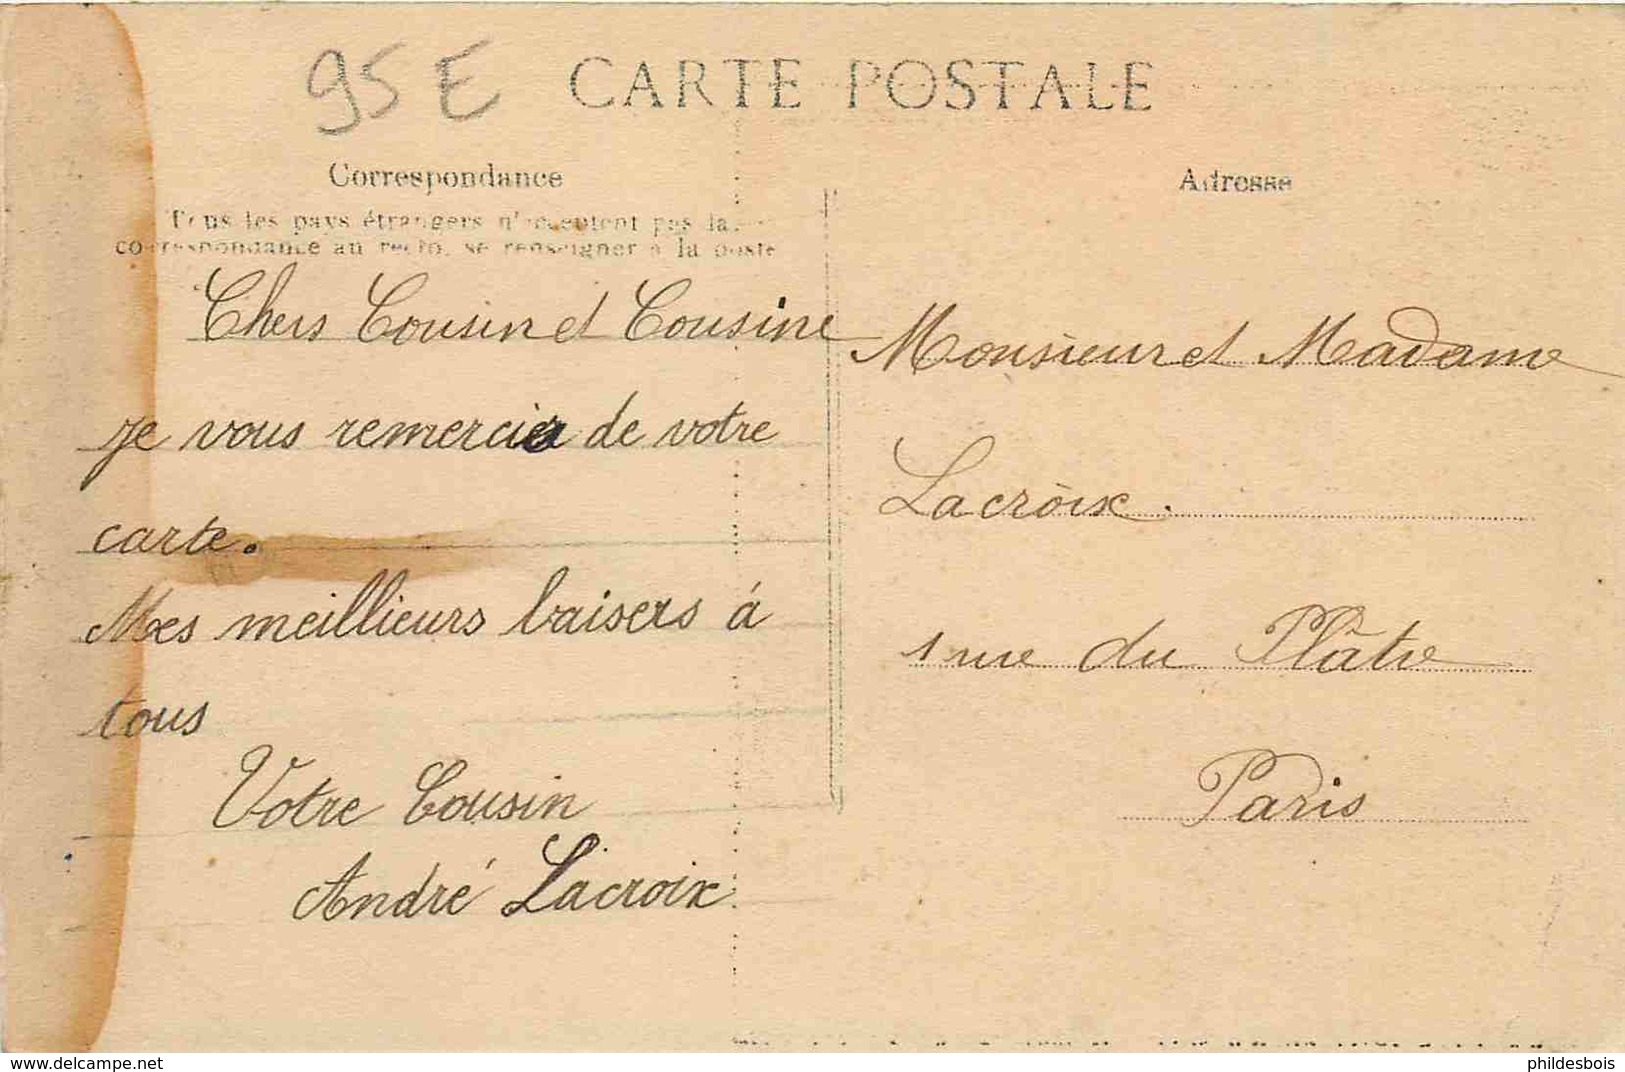 95 E
CARTE POSTALE
Correspondance
Adresse
Tous les pays étrangers n'acceptent pas la
correspondance au recto, se renseigner à la poste
Chers Cousin et Cousine
je vous remercie de votre
carte.
Mes meillieurs baisers á
tous
Votre Cousin
André Lacroix
Monsieur et Madame
Lacroix.
1 rue du Plâtre
Paris
https://www.delcampe.net
phildesbois